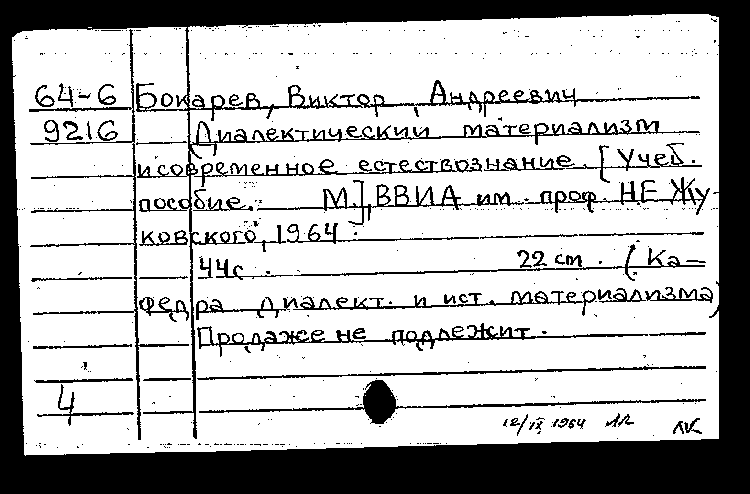 64-6 Бокарев, Виктор Андреевич
9216 Диалектический материализм
и современное естествознание. [Учеб.
пособие. М.], ВВИА им. проф. НЕ Жу-
ковского, 1964.
44с. 22 cm. (Ка-
федра диалект. и ист. материализма)
Продаже не подлежит.
4
12/IX 1964